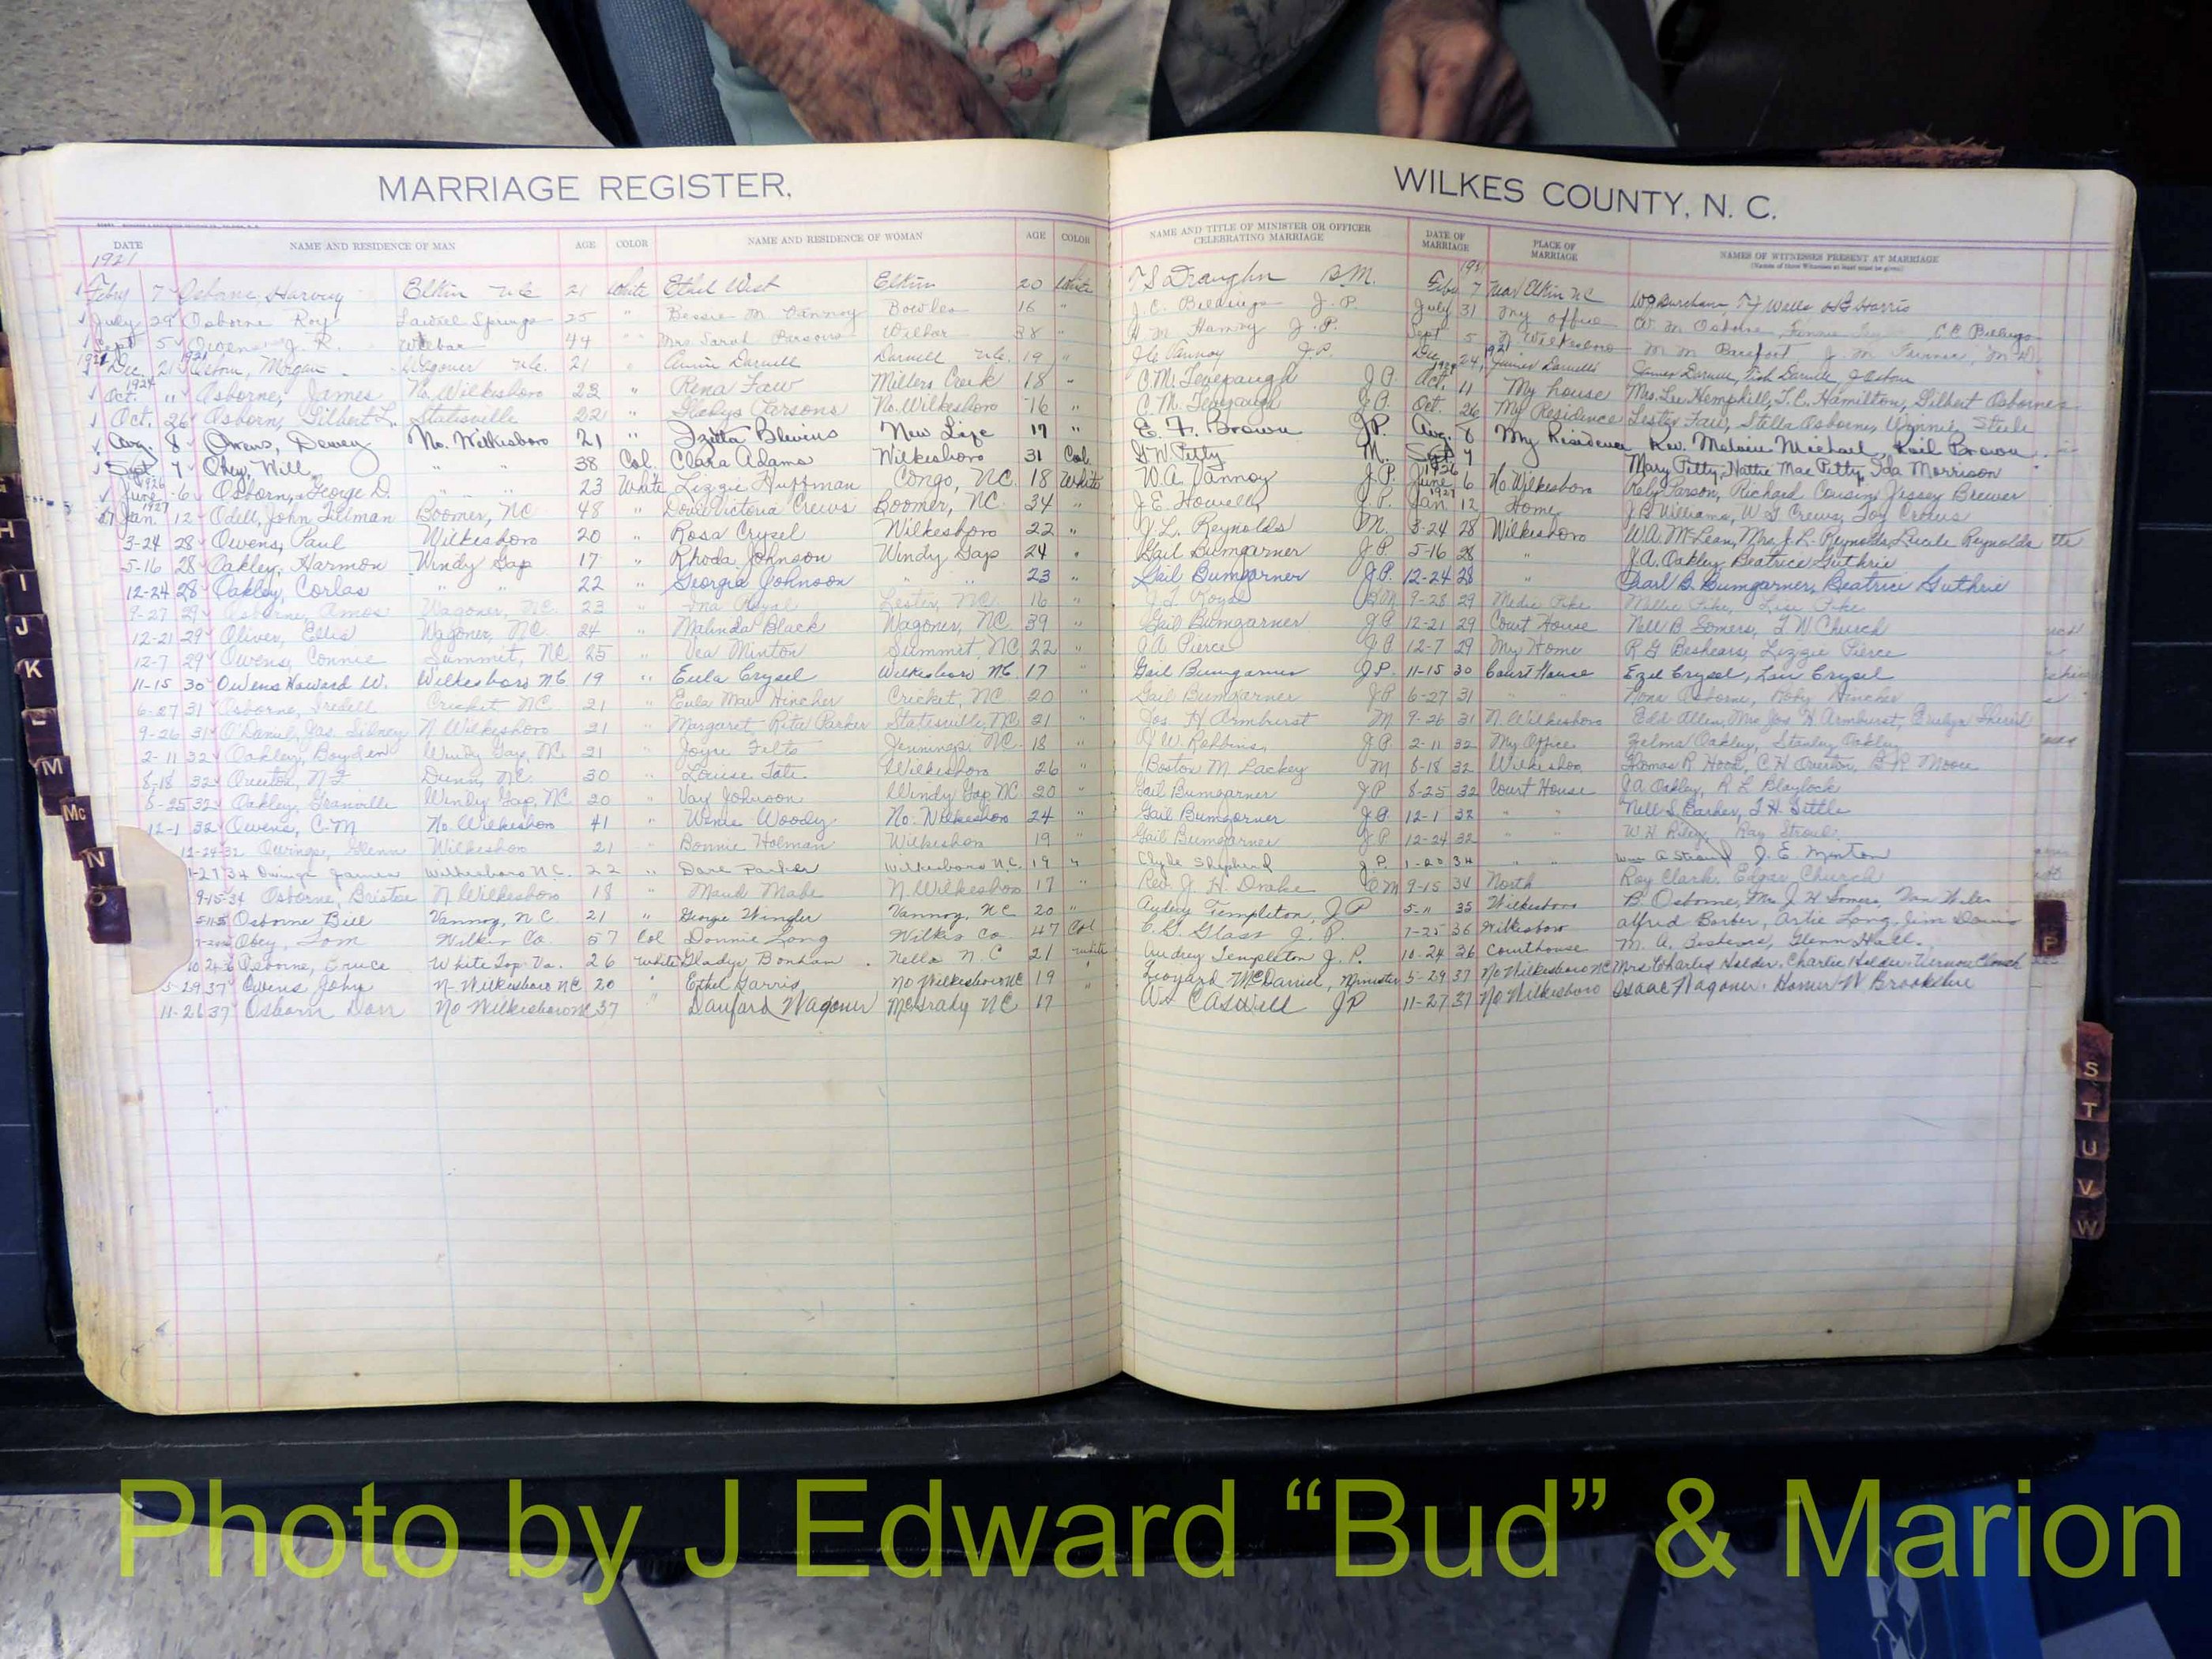 MARRIAGE REGISTER.
WILKES COUNTY, N. C.
DATE NAME AND RESIDENCE OF MAN AGE COLOR NAME AND RESIDENCE OF WOMAN AGE COLOR NAME AND TITLE OF MINISTER OR OFFICER CELEBRATING MARRIAGE DATE OF MARRIAGE PLACE OF MARRIAGE NAMES OF WITNESSES PRESENT AT MARRIAGE
1921
Feby 7 Osborne Harvey Elkin N.C. 21 White Ethel West Elkin 20 White T S Draughn B M. Feby 7 Near Elkin NC
July 29 Osborne Roy Laurel Springs 25 " Bessie M Vannoy Bowles 16 " J. C. Billings J. P. July 31 my office
Sept 5 Owens J. R. Wilbar 44 " Mrs Sarah Parsons Wilbar 38 " Sept 5 N Wilkesboro
Dec. 21 Osborn, Morgan Wagoner N.C. 21 " Annie Darnell Darnell N.C. 19 " J C Vannoy J.P. Dec 24 James Darnell
1924
Oct. 11 Osborne, James No. Wilkesboro 23 " Rena Faw Millers Creek 18 " C. M. J.P. Oct. 11 My house Mrs. Lee Hemphill, T. C. Hamilton, Gilbert Osborne
Oct. 26 Osborn, Gilbert L. Statesville 22 " Gladys Parsons No. Wilkesboro 16 " C. M. J.P. Oct. 26 My Residence Lester Faw, Stella Osborne, Winnie Steele
Aug. 8 Owens, Dewey No. Wilkesboro 21 " Izetta Blevins New Life 17 " E. F. Brown J.P. Aug. 8 My Residence Rev. Michael, Brown
Sept. 7 Obey, Will " " 38 Col. Clara Adams Wilkesboro 31 Col. G W Petty M. Sept 7 Mary Petty, Hattie Mae Petty, Ida Morrison
1926
June 6 Osborn, George D. " " 23 White Lizzie Huffman Congo, NC. 18 White W. A. Vannoy J.P. June 6 No. Wilkesboro Parson, Richard Cousin, Jessey Brewer
1927
Jan. 12 Odell, John Tillman Boomer, NC 48 " Dovie Victoria Crews Boomer, NC. 34 " J. E. Howell J.P. Jan. 12 Home J. B Williams, W. G Crews, Crews
3-24 28 Owens, Paul Wilkesboro 20 " Rosa Crysel Wilkesboro 22 " J. L. Reynolds M. 3-24 28 Wilkesboro W.A. McLean, Mrs. J. L. Reynolds, Lucile Reynolds
5-16 28 Oakley, Harmon Windy Gap 17 " Rhoda Johnson Windy Gap 24 " Gail Bumgarner J.P. 5-16 28 " J. A. Oakley, Beatrice Guthrie
12-24 28 Oakley, Corlas " " 22 " Georgia Johnson " " 23 " Gail Bumgarner J.P. 12-24 28 " Pearl B. Bumgarner, Beatrice Guthrie
9-27 29 Osborne, Amos Wagoner, NC. 23 " Ina Royal Lester, NC. 16 " 9-28 29
12-21 29 Oliver, Ellis Wagoner, NC. 24 " Malinda Black Wagoner, NC 39 " Gail Bumgarner J.P 12-21 29 Court House Nell B Somers, F W Church
12-7 29 Owens, Connie Summit, NC 25 " Vea Minton Summit, NC 22 " A A Pierce J.P 12-7 29 My Home R G Beshears, Lizzie Pierce
11-15 30 Owens Howard W. Wilkesboro NC 19 " Eula Crysel Wilkesboro NC 17 " Gail Bumgarner J.P. 11-15 30 Court House Ezie Crysel, Crysel
6-27 31 Osborne, Iredell Cricket NC 21 " Eula Mae Hincher Cricket, NC. 20 " Gail Bumgarner J.P 6-27 31 " " Osborne, Roby Hincher
9-26 31 O'Daniel, Jas. Sidney N Wilkesboro 21 " Margaret Rita Parker Statesville, NC 21 " Jos. H Armburst M 9-26 31 N. Wilkesboro Edd Allen, Mrs Jos. H Armburst, Evelyn
2-11 32 Oakley, Boyden Windy Gap, NC 21 " Joyce Felts Jennings, NC. 18 " J W Robbins, J.P. 2-11 32 My Office Zelma Oakley, Stanley Oakley
8-18 32 N F Dunn, NC. 30 " Louise Tate Wilkesboro 26 " Boston M Lackey M 8-18 32 Wilkesboro Thomas R. Hood, C H B. R Moore
8-25 32 Oakley, Granville Windy Gap, NC 20 " Vay Johnson Windy Gap NC 20 " Gail Bumgarner J.P 8-25 32 Court House J A Oakley, R L Blaylock
12-1 32 Owens, C M No. Wilkesboro 41 " Woody No. Wilkesboro 24 " Gail Bumgarner J.P 12-1 32 " " Nell S. Barker, F H Settle
12-24-32 Owings, Glenn Wilkesboro 21 " Bonnie Holman Wilkesboro 19 " Gail Bumgarner J P 12-24 32 " " W H Riley Ray Stroud
1-27 34 Owings James Wilkesboro N.C. 22 " Dare Parker Wilkesboro N.C. 19 " Clyde Shepherd J. P. 1-20 34 " " J. E. Minton
9-15-34 Osborne, Bristoe N Wilkesboro 18 " Maude Mabe N Wilkesboro 17 " Rev. J. H. Drake M 9-15 34 North Roy Clark, Edgar Church
5-11-5 Osborne Bill Vannoy, N C. 21 " Georgie Wingler Vannoy, NC 20 " Audrey Templeton, J P 5-11 35 Wilkesboro B. Osborne, Mrs J H Somers,
Obey, Tom Wilkes Co. 57 Col Donnie Long Wilkes Co 47 Col C. G. Glass J. P. 7-25 36 Wilkesboro Alfred Barber, Artie Long, Jim Davis
10 24 6 Osborne, Bruce White Top Va. 26 White Gladys Bonham Nella N. C 21 White Audrey Templeton J. P. 10-24 36 Courthouse M. A. Beshears, Glenn Hall.
5-29 37 Owens John N- Wilkesboro NC 20 " Ethel Garris No Wilkesboro NC 19 " McDaniel, Minister 5-29 37 No Wilkesboro NC Mrs Charlie Holder. Charlie Holder. Vernon
11-26 37 Osborn Don No Wilkesboro NC 37 Wagoner McGrady NC 17 Caswell J P 11-27 37 No Wilkesboro Isaac Wagoner. Homer W Brookshire
H
I
J
K
L
M
Mc
N
O
P
S
T
U
V
W
Photo by J Edward “Bud” & Marion